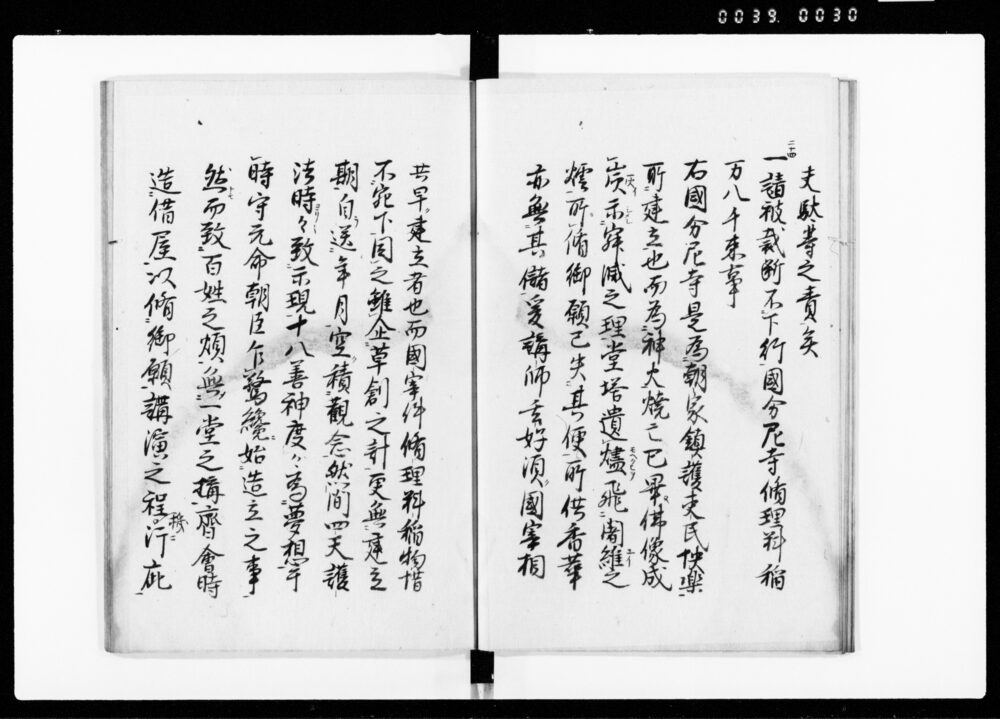 0039. 0030
夫駄等之責矣
二十四
一請被裁断不下行國分尼寺脩理料稲
万八千束事
右國分尼寺是為朝家鎮護吏民快樂
所建立也而為神火焼亡已畢佛像成
灰示寂滅之理堂塔遺燼飛闍維之
煙所脩御願已失其便所供香華
亦無其儲爰講師玄好須國宰相
共早建立者也而國宰件脩理料稲物惜
不宛下因之雖企草創之計更無建立
期自送年月空積觀念然間四天護
法時々致示現十八善神度々為夢想于
時守元命朝臣乍驚纔始造立之事
然而致百姓之煩無一堂之構齊會時
造借屋以脩御願講演之程汚穢庇